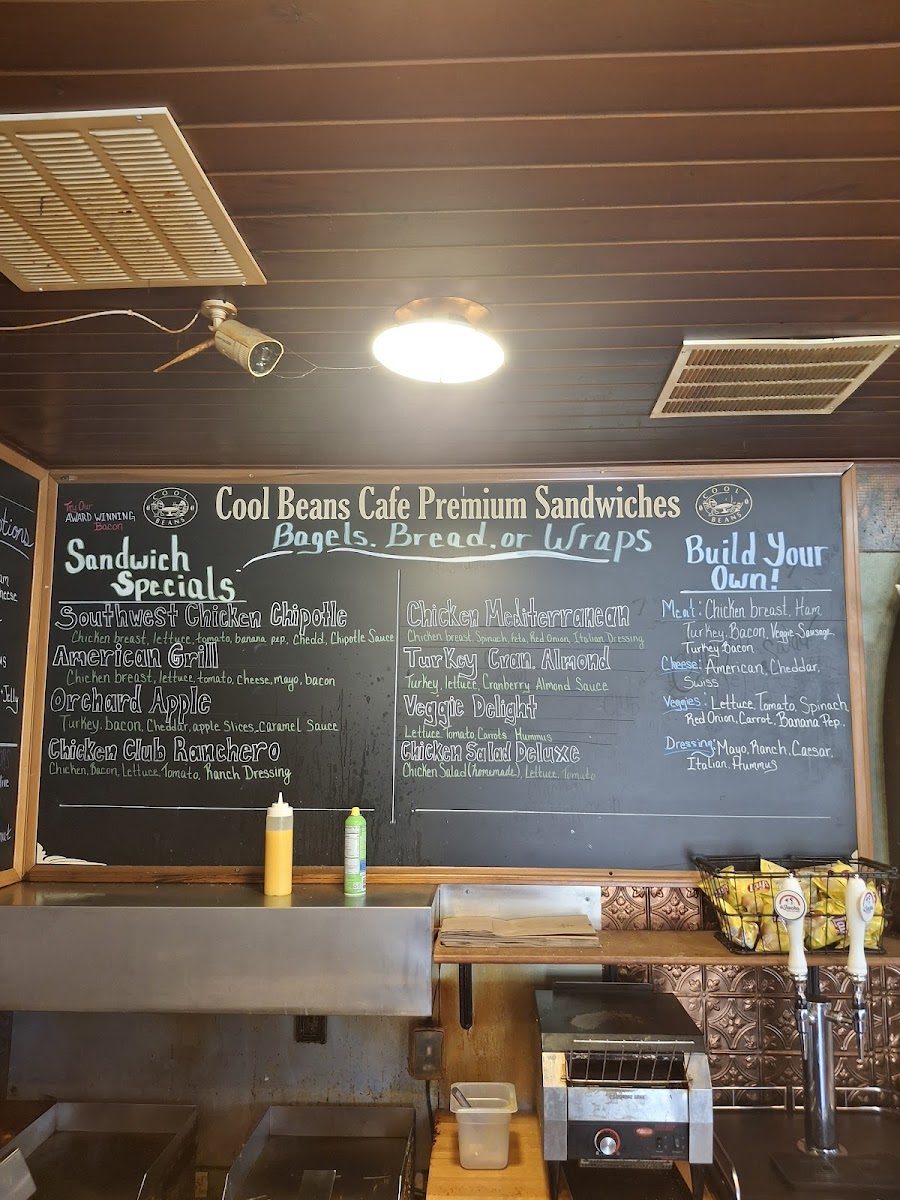 Try Our
AWARD WINNING
Bacon
COOL
BEANS
Cool Beans Cafe Premium Sandwiches
COOL
BEANS
Bagels. Bread. or Wraps
Sandwich
Specials
Southwest Chicken Chipotle
Chicken breast, lettuce, tomato, banana pep, Chedd, Chipotle Sauce
American Grill
Chicken breast, lettuce, tomato, cheese, mayo, bacon
Orchard Apple
Turkey, bacon, Cheddar, apple slices, Caramel Sauce
Chicken Club Ranchero
Chicken, Bacon, Lettuce, Tomato, Ranch Dressing
Chicken Mediterranean
Chicken breast, Spinach, feta, Red Onion, Italian Dressing
Turkey Cran. Almond
Turkey, lettuce, Cranberry Almond Sauce
Veggie Delight
Lettuce, Tomato, Carrots, Hummus
Chicken Salad Deluxe
Chicken Salad (homemade), Lettuce, Tomato
Build Your
Own!
Meat: Chicken breast, Ham
Turkey, Bacon, Veggie-Sausage,
Turkey Bacon
Cheese: American, Cheddar,
Swiss
Veggies: Lettuce, Tomato, Spinach,
Red Onion, Carrot, Banana Pep.
Dressing: Mayo, Ranch, Caesar,
Italian, Hummus
Jelly